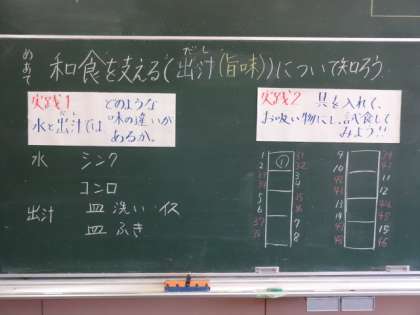 めあて 和食を支える(出汁(旨味))について知ろう
だし
実践1 どのような
水と出汁では味の違いが
だし
あるか。
実践2 具を入れて、
お吸い物にし、試食して
みよう!!
水 シンク
コンロ
出汁 皿洗い・イス
皿ふき
1 ① 31
2 32
3
4
5
6
7
8
9
10
11
12
13
14
15
16